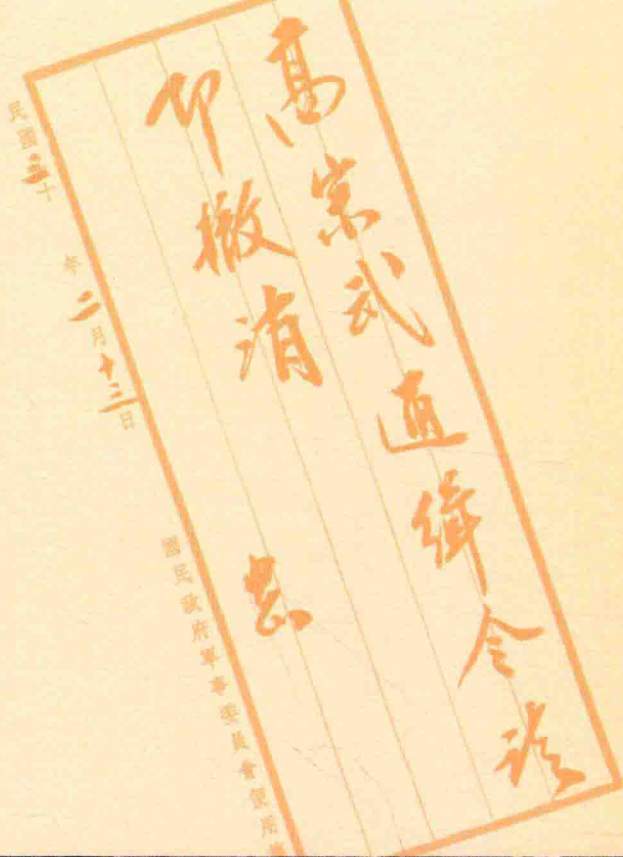 高宗武通緝令該
即撤消
民國三十年二月十三日
國民政府軍事委員會便用